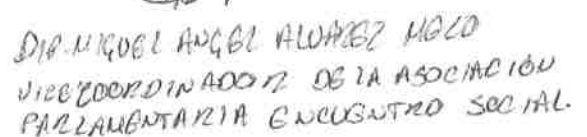 DIP. MIGUEL ANGEL ALVAREZ MELO
VICECOORDINADOR DE LA ASOCIACIÓN
PARLAMENTARIA ENCUENTRO SOCIAL.